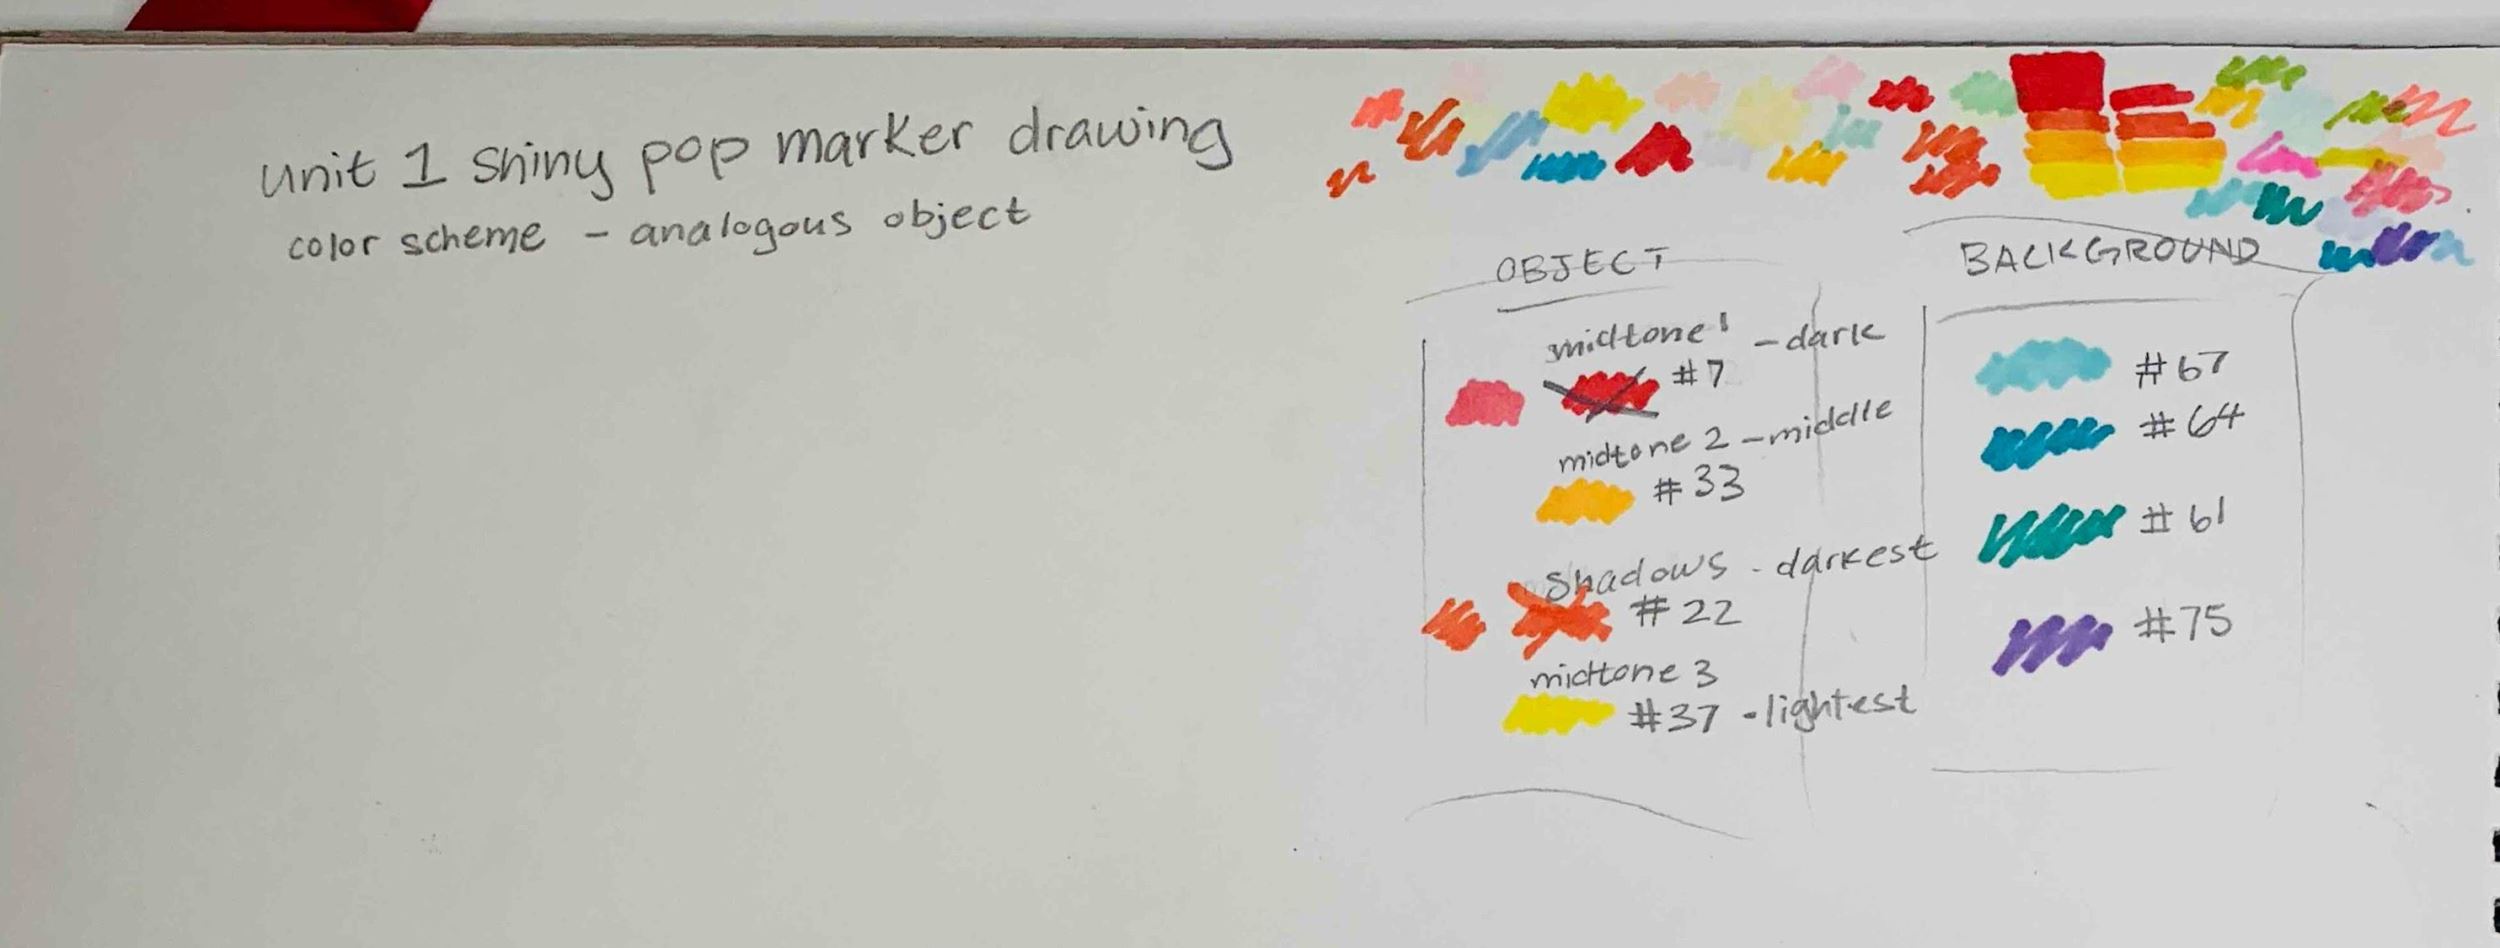 unit 1 shiny pop marker drawing
color scheme - analogous object
OBJECT
midtone 1 - dark
#7
midtone 2 - middle
#33
Shadows - darkest
#22
midtone 3
#37 - lightest
BACKGROUND
#67
#64
#61
#75